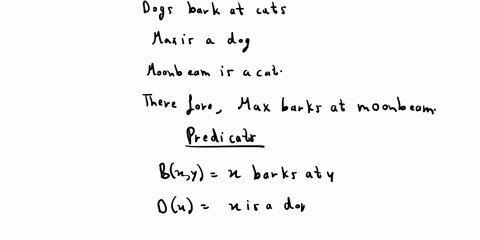 Dogs bark at cats
Max is a dog
Moonbeam is a cat.
There fore, Max barks at moonbeam.
Predicats
B(x,y) = x barks at y
D(x) = x is a dog